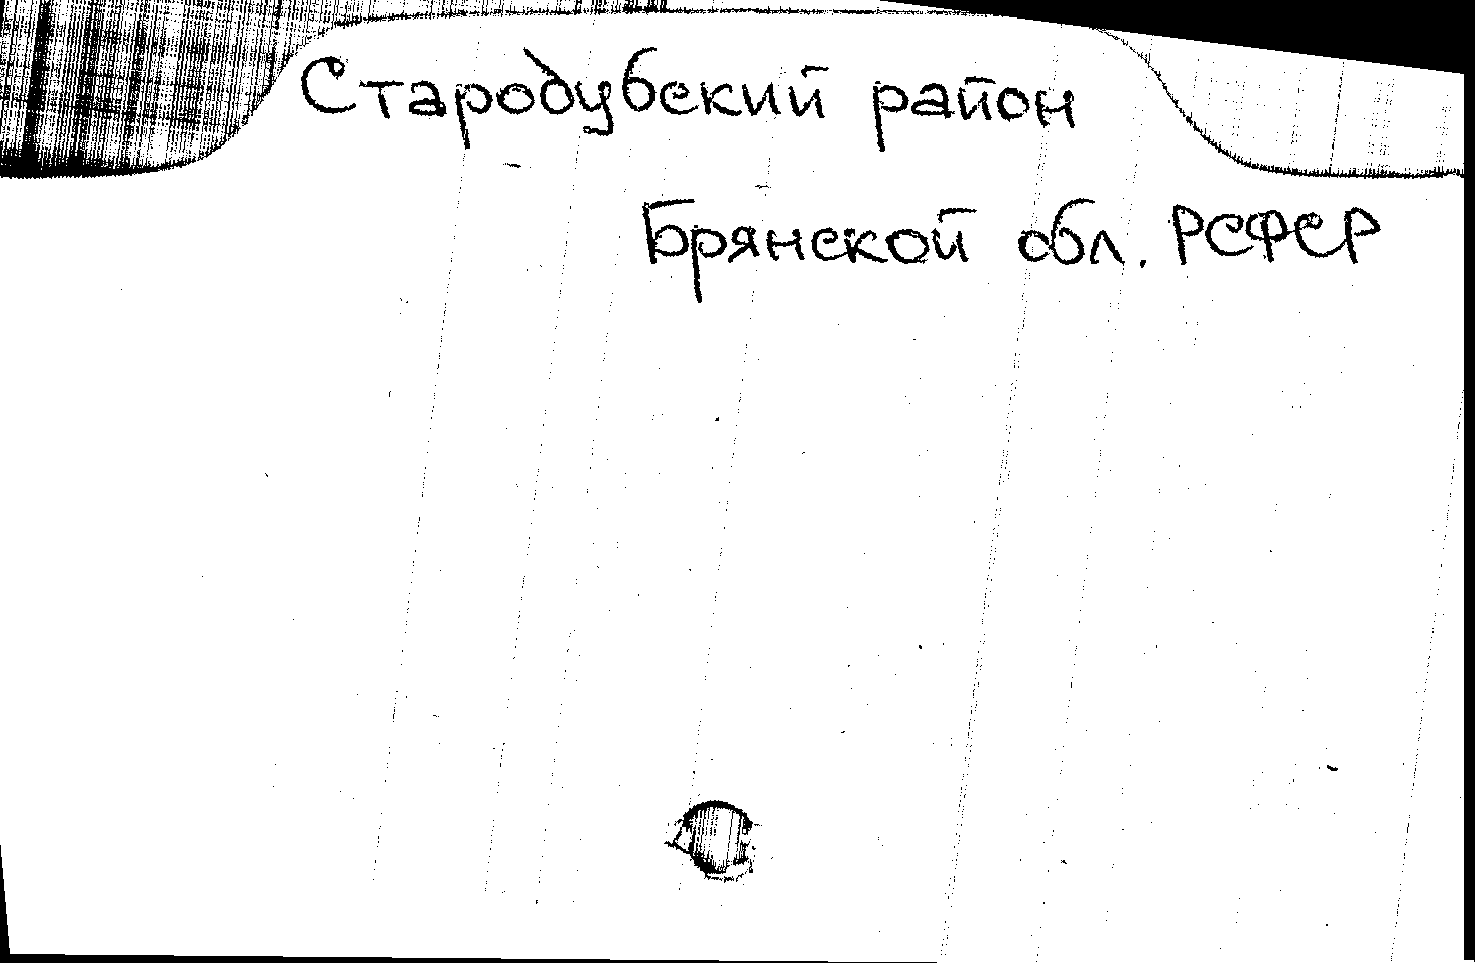 Стародубский район
Брянской обл. РСФСР